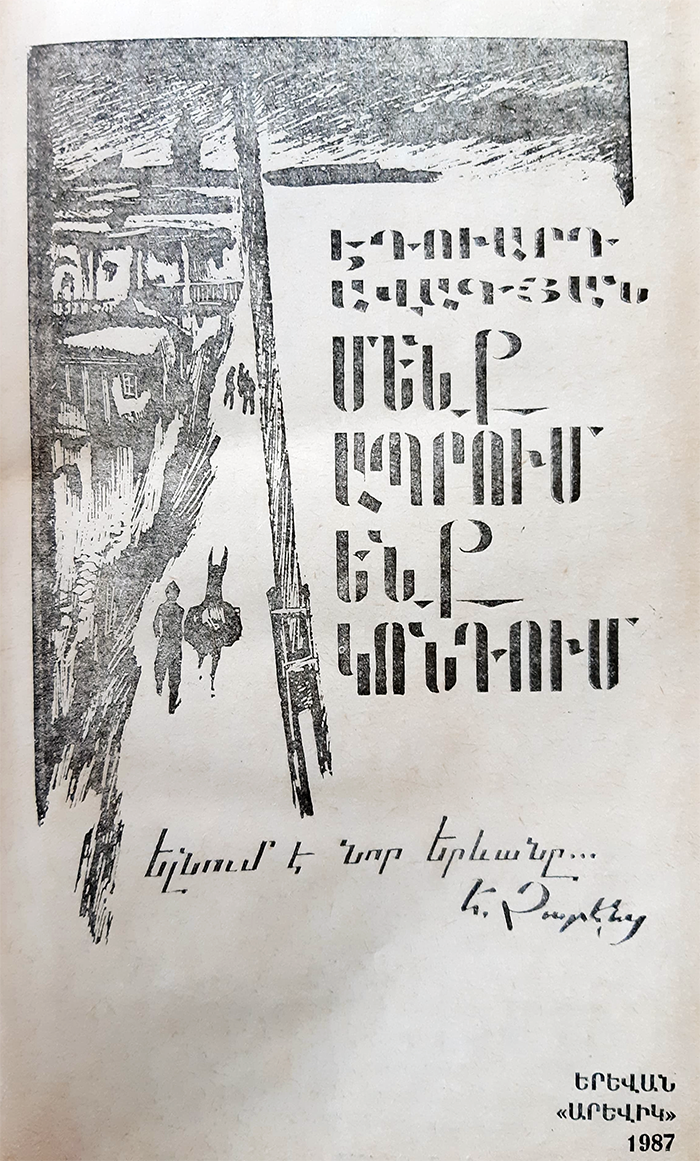 ԷԴՈՒԱՐԴ
ԱՎԱԳՅԱՆ
ՄԵՆՔ
ԱՊՐՈՒՄ
ԵՆՔ
ԿՈՆԴՈՒՄ
Ելնում է նոր Երևանը...
Ե. Չարենց
ԵՐԵՎԱՆ
«ԱՐԵՎԻԿ»
1987